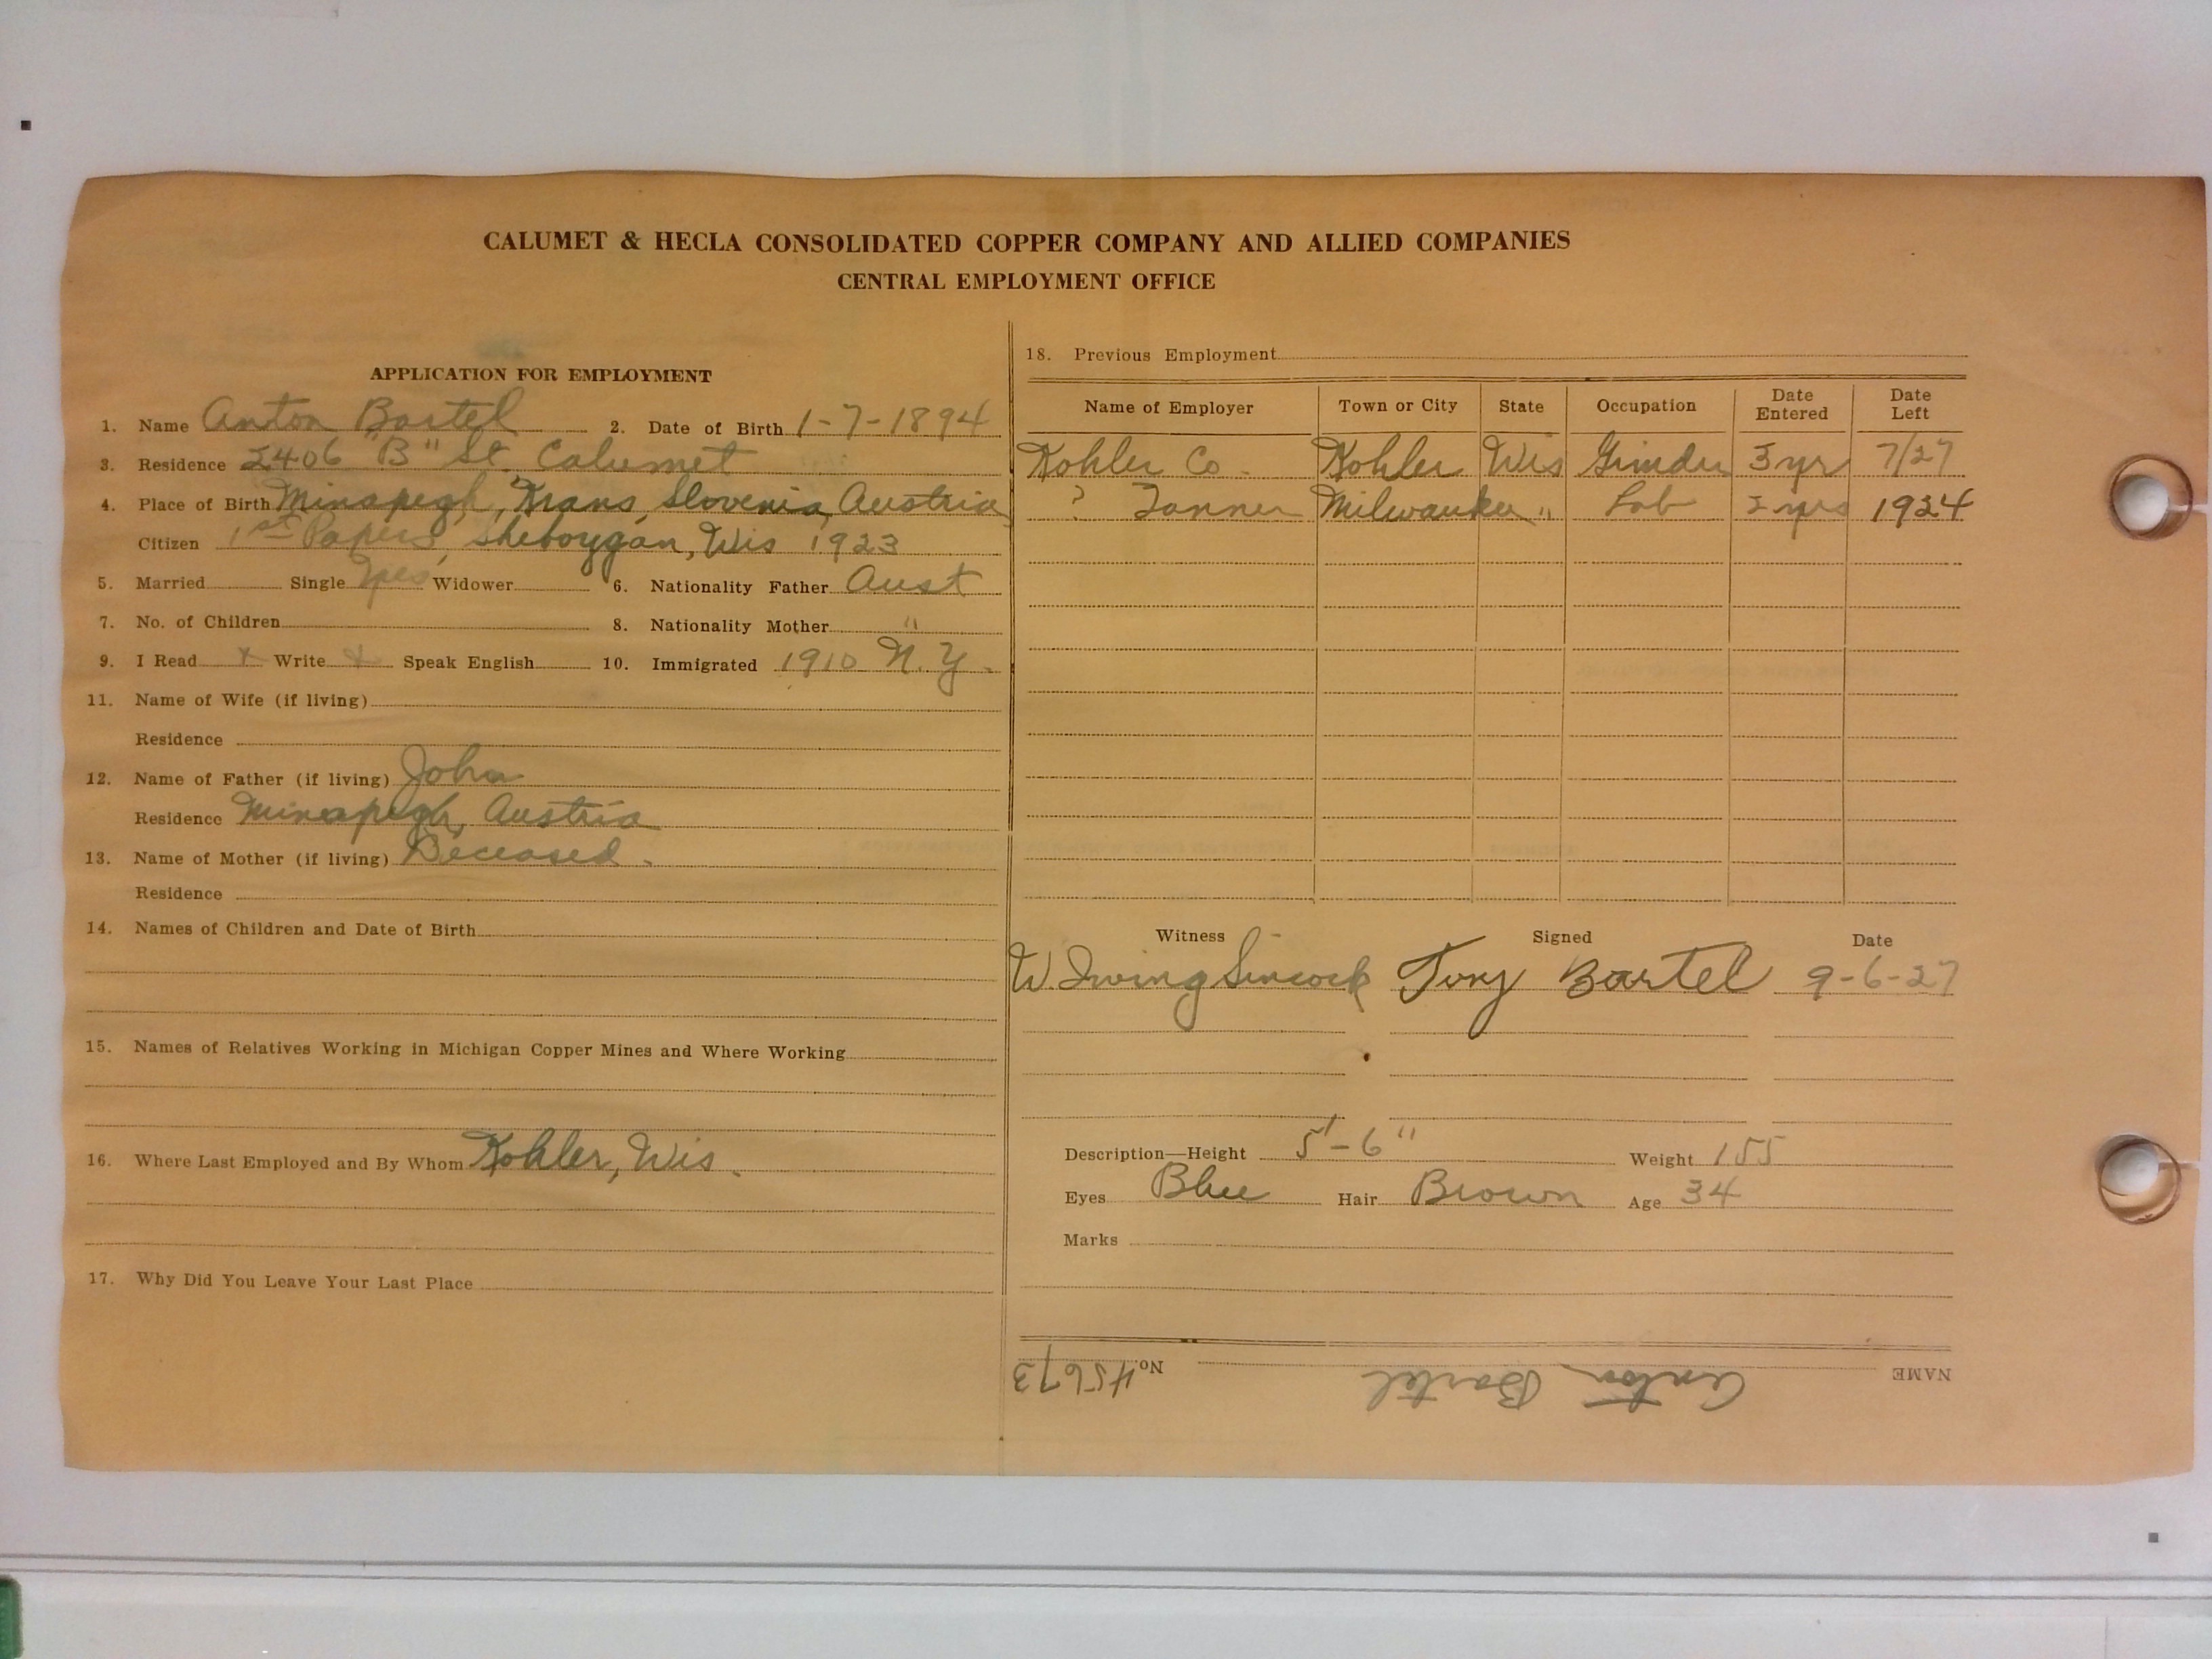 CALUMET & HECLA CONSOLIDATED COPPER COMPANY AND ALLIED COMPANIES
CENTRAL EMPLOYMENT OFFICE
APPLICATION FOR EMPLOYMENT
1. Name Anton Bartel 2. Date of Birth 1-7-1894
3. Residence 2406 "B" St. Calumet
4. Place of Birth Minapegh, Krans, Slovenia, Austria
Citizen 1st Papers, Sheboygan, Wis 1923
5. Married Single Yes Widower 6. Nationality Father Aust
7. No. of Children 8. Nationality Mother "
9. I Read x Write x Speak English 10. Immigrated 1910 N.Y.
11. Name of Wife (if living)
Residence
12. Name of Father (if living) John
Residence Minapegh, Austria
13. Name of Mother (if living) Deceased.
Residence
14. Names of Children and Date of Birth
15. Names of Relatives Working in Michigan Copper Mines and Where Working
16. Where Last Employed and By Whom Kohler, Wis.
17. Why Did You Leave Your Last Place
18. Previous Employment
Name of Employer Town or City State Occupation Date Entered Date Left
Kohler Co. Kohler Wis Grinder 3 yrs 7/27
? Tanner Milwaukee " Lab 2 yrs 1924
Witness Signed Date
W. Irving Sincock Tony Bartel 9-6-27
Description—Height 5'-6" Weight 155
Eyes Blue Hair Brown Age 34
Marks
NAME Anton Bartel No. 45673